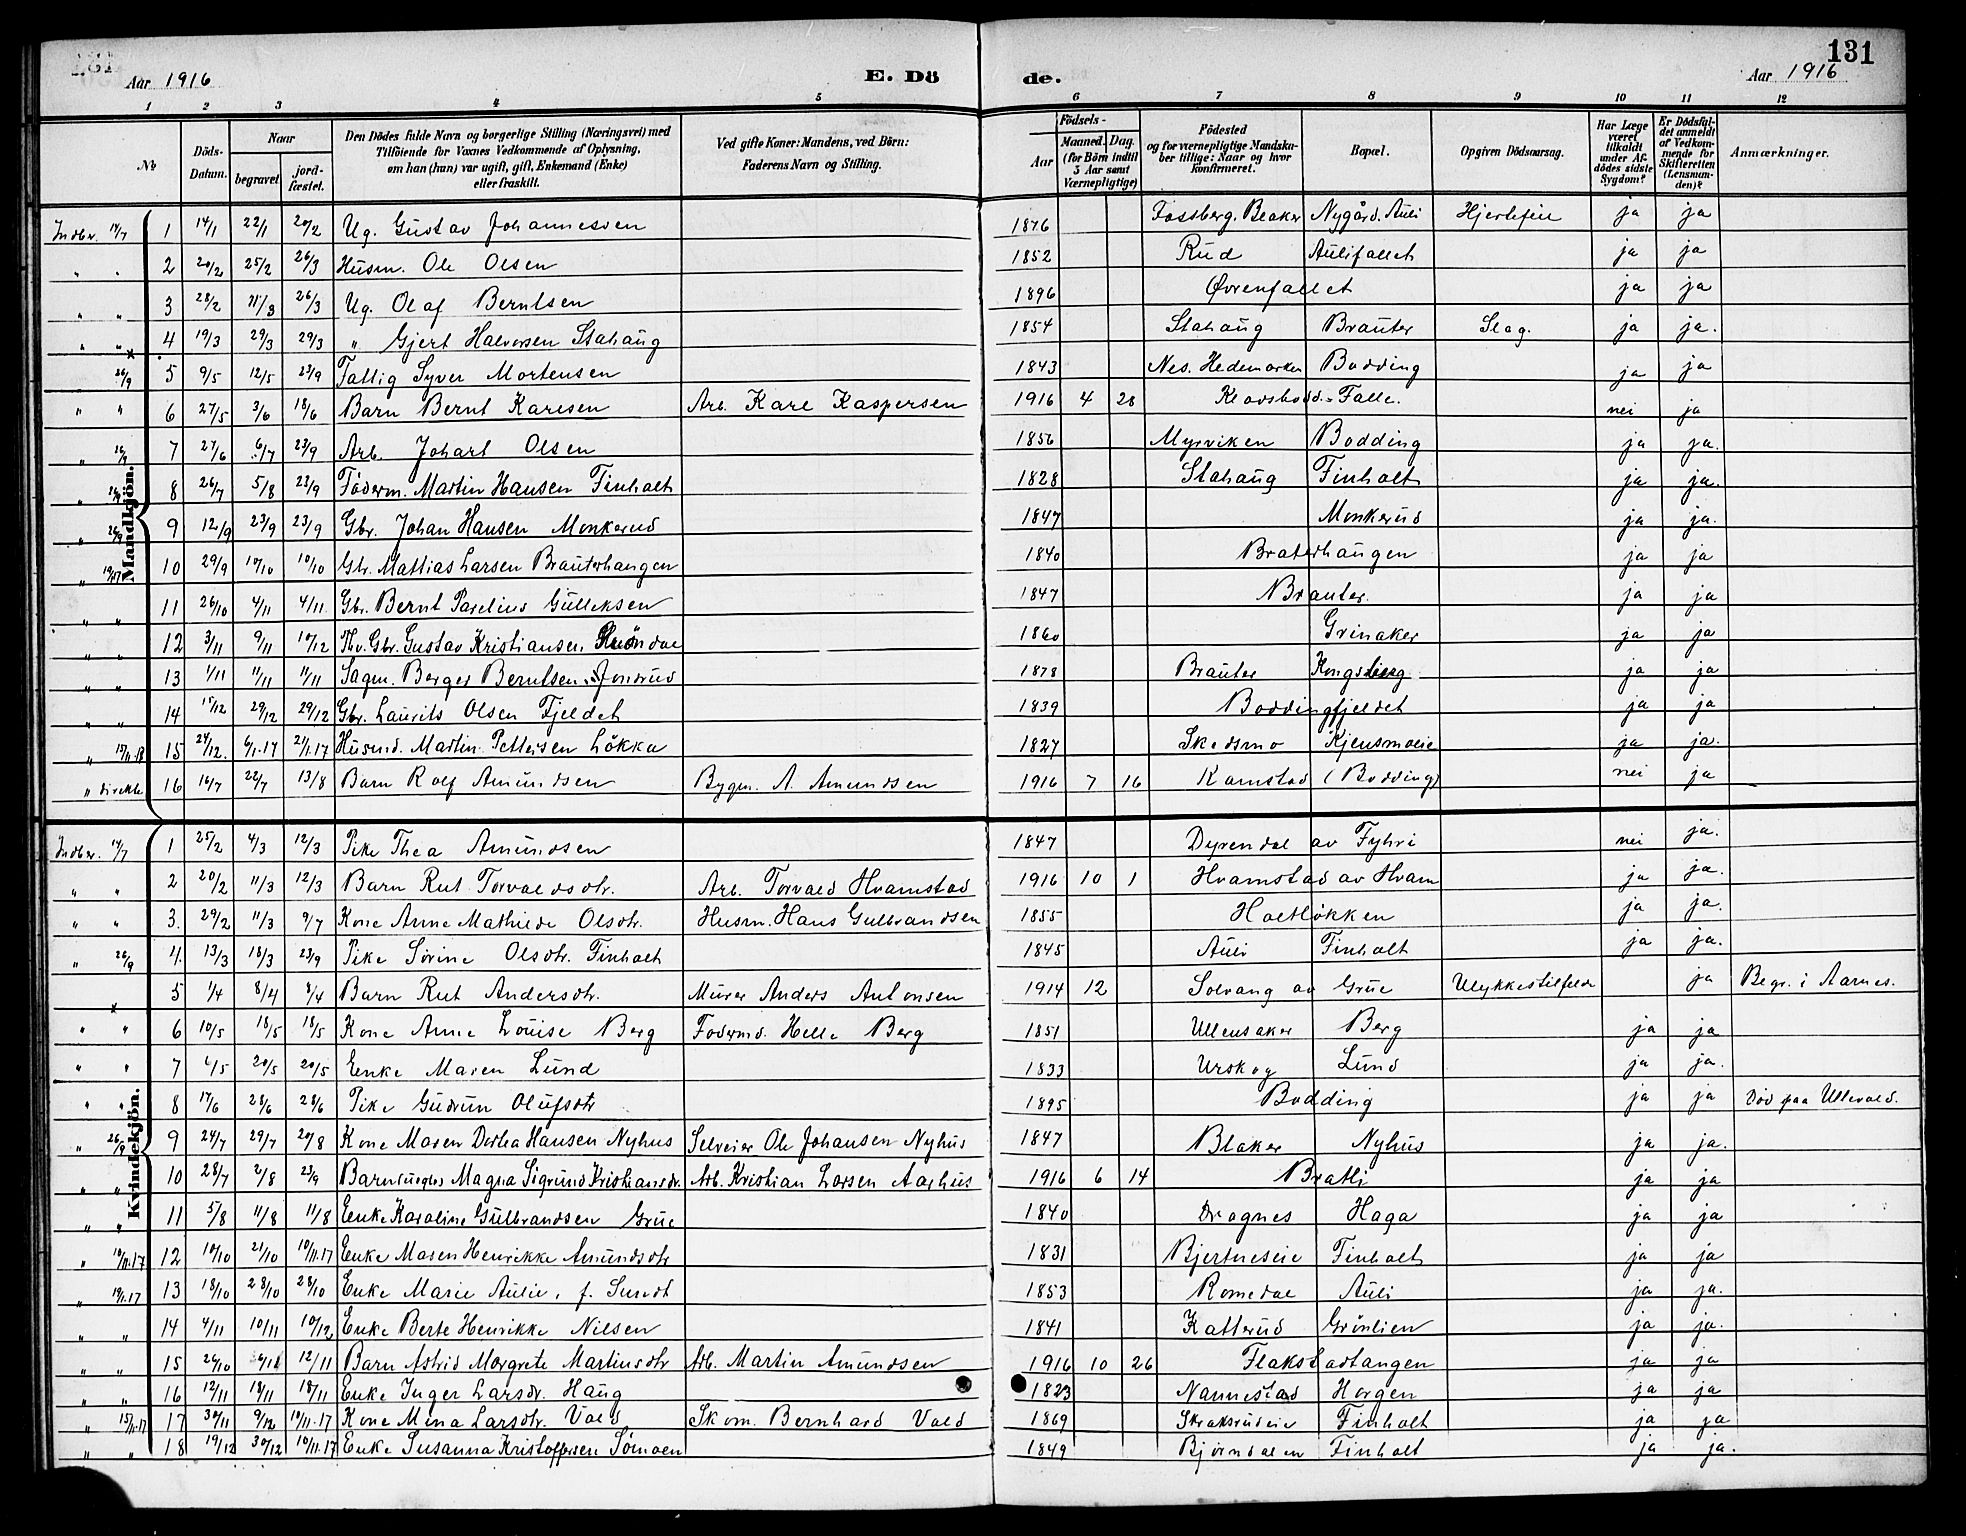 131
Aar 1916 E. Dö de. Aar 1916
1 2 3 4 5 6 7 8 9 10 11 12
No Döds-Datum. Naar begravet jord-fæstet. Den Dödes fulde Navn og borgerlige Stilling (Næringsvei) med Tilföiende for Voxnes Vedkommende af Oplysning, om han (hun) var ugift, gift, Enkemand (Enke) eller fraskilt. Ved gifte Koner: Mandens, ved Börn: Faderens Navn og Stilling. Födsels- Aar Maaned. Dag. (for Börn indtil 3 Aar samt Værnepligtige) Födested og for værnepligtige Mandska-ber tillige: Naar og hvor konfirmeret. Bopæl. Opgiven Dödsaarsag. Har Læge været tilkaldt under Af-dödes sidste Sygdom? Er Dödsfal-det anmeldt af Vedkom-mende for Skifteretten (Lensman-den)? Anmærkninger.
Mandkjön.
Indbr. 14/7 1 14/1 22/1 20/2 Ug. Gustav Johannessen 1876 Fossberg. Blaker Nygård. Auli Hjertefeil ja ja
" " 2 20/2 25/2 26/3 Husm. Ole Olsen 1852 Rud Aulifallet ja ja
" " 3 28/2 11/3 26/3 Ug. Olaf Berntsen 1896 Øvrenfallet ja ja
" " 4 19/3 29/3 29/3 " Gjert Halvorsen Stahaug 1854 Stahaug Brauter Slag. ja ja.
26/9 5 9/5 12/5 23/9 Fattig Syver Mortensen 1843 Nes. Hedemarken Bodding ja ja
" " 6 27/5 3/6 18/6 Barn Bernt Karlsen Arb. Karl Kaspersen 1916 4 28 Falle. nei ja
" 26/9 7 27/6 6/7 23/9 Arb. Johart Olsen 1856 Myrviken Bodding ja ja.
" 26/9 8 26/7 5/8 23/9 Föderm. Martin Hansen Finholt 1828 Stahaug Finholt ja ja.
" 26/9 9 12/9 23/9 23/9 Gbr. Johan Hansen Monkerud 1847 Monkerud ja ja.
" 10 29/9 10/10 10/10 Gbr. Mattias Larsen Brauterhaugen 1840 Braterhaugen ja ja
" " 11 26/10 4/11 4/11. Gbr. Bernt Parelius Gulleksen 1847 Brauter. ja ja
" " 12 3/11 9/11 10/12 Fhv. Gbr. Gustav Kristiansen 1860 Grinaker ja ja
" " 13 1/11 11/11 11/11 Sagm. Berger Berntsen Jonsrud 1878 Brauter Kongsberg ja ja
" " 14 15/12 29/12 29/12 Gbr. Laurits Olsen Fjeldet 1839 Boddingfjeldet ja ja
" 15/11.18 15 24/12. 6/1.17 21/1.17 Husmd. Martin Pettersen Løkka 1827 Skedsmo Kjensmoeie ja ja.
" direkte 16 16/7 22/7 13/8 Barn Rolf Amundsen Bygm. A. Amundsen 1916 7 16 Kamstad (Bodding) nei ja
Kvindekjön.
Indber. 14/7 1 25/2 4/3 12/3 Pike Thea Amundsen 1847 Dyrendal av Fyhri nei ja.
" " 2 20/2 11/3 12/3 Barn Rut Torvaldsdtr. Arb. Torvald Hvamstad 1916 10 1 Hvamstad av Hvam ja ja.
" " 3. 29/2 11/3 9/7 Kone Anne Mathilde Olsdtr. Husm. Hans Gulbrandsen 1855 Holtløkken ja ja.
" 26/9 4. 13/3 18/3 23/9 Pike Sørine Olsdtr. Finholt 1845 Auli Finholt ja ja.
5 1/4 8/4 8/4 Barn Rut Andersdtr. Murer Anders Antonsen 1914 12 Solvang av Grue Ulykkestilfelde ja Begr. i Aarnes.
" " 6 10/5 18/5 18/5 Kone Anne Louise Berg Födermd. Helle Berg 1851 Ullensaker Berg ja ja
" " 7 4/5 20/5 20/5 Enke Maren Lund 1833 Urskog Lund ja ja.
" " 8 17/6 28/6 28/6 Pike Gudrun Olufsdtr 1895 Bodding ja ja Död paa Ullevaal.
" 26/9 9 24/7 29/7 20/8 Kone Maren Dorthea Hansen Nyhus Selveier Ole Johansen Nyhus 1847 Blaker Nyhus ja ja.
" " 10 28/7 2/8 23/9 Barn Magna Sigrund Kristiansdr. Arb. Kristian Larsen Aarhus 1916 6 14 Bratli ja ja
" " 11 5/8 11/8 11/8 Enke Karoline Gulbrandsen Grue 1840 Dragnes Haga ja ja
" 10/11.17 12 10/10 21/10 10/11.17 Enke Maren Henrikke Amundsdtr 1831 Bjertneseie Finholt ja ja
" 19/1.17 13 18/10 28/10 28/10 Enke Marie Aulie, f. Sundt 1853 Romedal Auli ja ja.
" " 14 4/11 10/11 10/12 Enke Berte Henrikke Nilsen 1841 Katterud Grönlien ja ja.
" " 15 26/10 12/11 Barn Astrid Margrete Martinsdtr Arb. Martin Amundsen 1916 10 26 Flakstadtangen ja ja
" " 16 12/11 18/11 18/11 Enke Inger Larsdr. Haug 1823 Nannestad Horgen ja ja
" 15/11.17 17 30/11 9/12 10/11.17 Kone Mina Larsdtr. Vold Skom. Bernhard Vold 1869 Skraksrudeie Finholt ja ja
" " 18 19/12 30/12 10/11.17 Enke Susanna Kristoffersen Sømoen 1849 Bjørndalen Finholt ja ja.